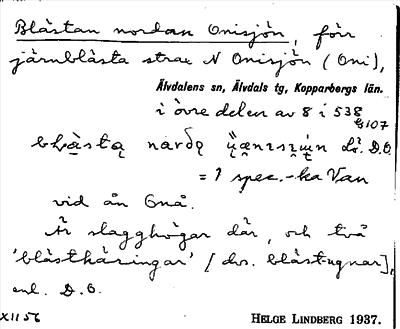 Blästan nordan Onisjön, förr
järnblästa strax N Onisjön (Oni),
Älvdalens sn, Älvdals tg, Kopparbergs län.
i övre delen av 8 i 538
G107
D.O.
= 1 spec.-ka Van
vid ån Gnå.
Är slagghögar där, och två
'blästkäringar' [dvs. blästugnar],
enl. D.O.
XII 56 HELGE LINDBERG 1937.